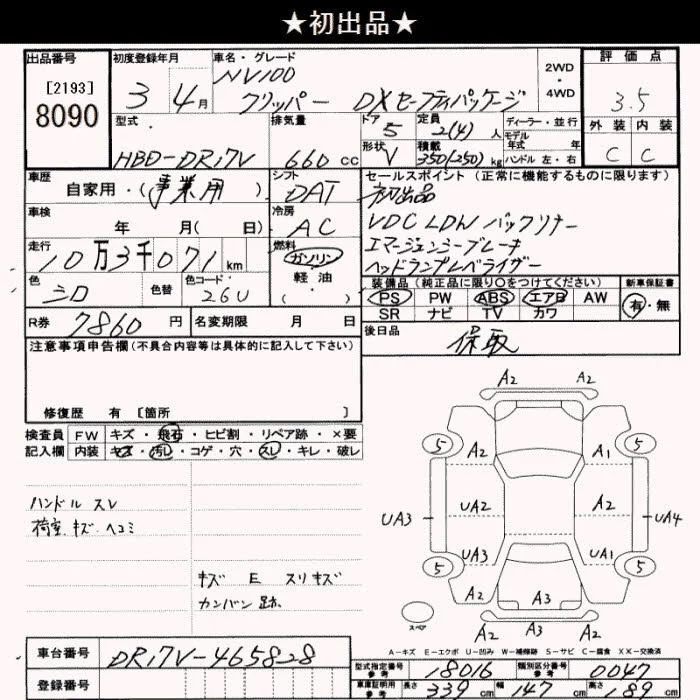 ★初出品★
出品番号
[2193]
8090
初度登録年月
3年 4月
車名・グレード
NV100
クリッパー DXセーフティパッケージ
2WD
・
4WD
評価点
3.5
外装 内装
C C
型式
HBD-DR17V
排気量
660 cc
ドア
5
形状
V
定員
2(4) 人
積載
350(250) kg
ディーラー・並行
モデル
年式 年
ハンドル 左・右
車歴
自家用・(事業用)
シフト
DAT
車検
年 月( 日)
冷房
AC
走行
10万3千071 km
燃料
ガソリン
軽油
・( )
色
シロ
色替
色コード
26U
R券
7860 円
名変期限 月 日
セールスポイント (正常に機能するものに限ります)
初出品
VDC LDW バックソナー
エマージェンシーブレーキ
ヘッドランプレベライザー
装備品 (純正品に限り○をつけてください)
PS PW ABS エアB AW
SR ナビ TV カワ
新車保証書
有・無
後日品
保取
注意事項申告欄(不具合内容等は具体的に記入して下さい)
修復歴 有 [箇所 ]
検査員
記入欄
FW キズ・飛石・ヒビ割・リペア跡・×要
内装 キズ・汚レ・コゲ・穴・スレ・キレ・破レ
ハンドル スレ
荷室 キズ ヘコミ
キズ E スリキズ
カンバン跡
A2 A2
5 A2 A1 5
UA2 A2
UA3 UA4
UA3 UA1
5 5
A2 A3 A2
A2 A3 A2
スペア
A-キズ E-エクボ U-凹み W-補修跡 S-サビ C-腐食 XX-交換済
車台番号
DR17V-465828
登録番号
型式指定番号
参考
18016
類別区分番号
参考
0047
車庫証明用
参考
長さ 339 cm 幅 147 cm 高さ 189 cm